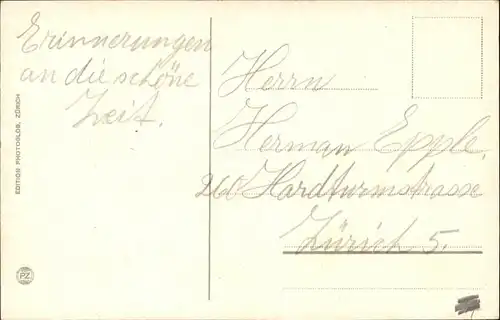 Erinnerungen
an die schöne
Zeit.
EDITION PHOTOGLOB, ZÜRICH
PZ
Herrn
Herman Epple,
260 Hardturmstrasse
Zürich 5.